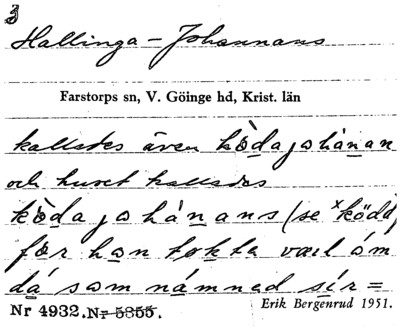 3
Hallinga-Johannans
Farstorps sn, V. Göinge hd, Krist. län
kallades även kò̱dajohànan
och huset kallades
kò̱dajohànans (se ˣködd)
før han tokte varl om
dá som námned sír=
Nr 4932. Nr 5355. Erik Bergenrud 1951.